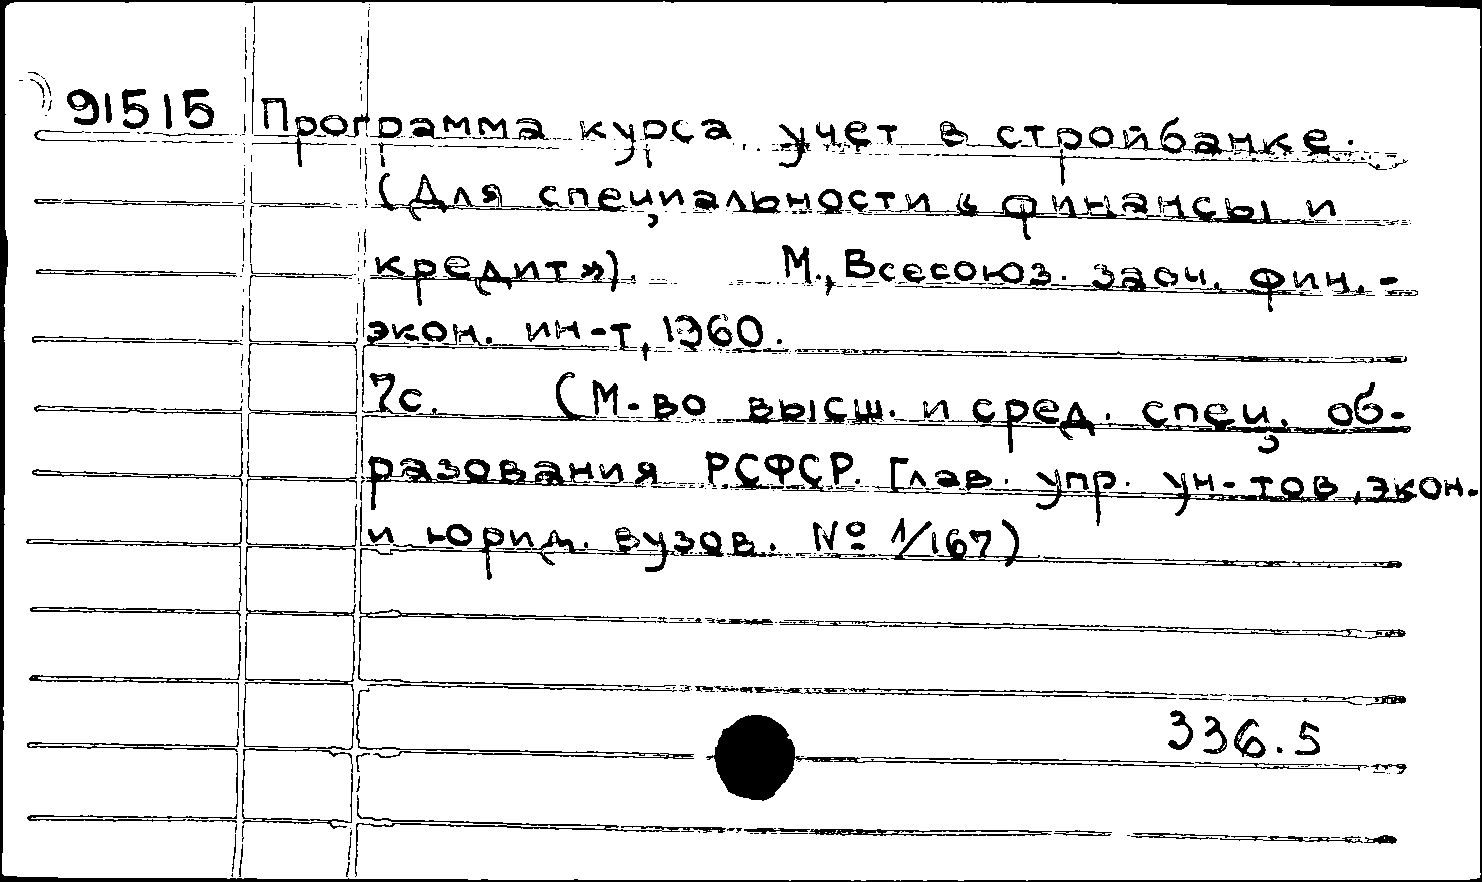 91515 Программа курса учет в стройбанке.
(Для специальности «финансы и
кредит»). М., Всесоюз. заоч. фин.-
экон. ин-т, 1960.
7с. (М-во высш. и сред. спец. об-
разования РСФСР. Глав. упр. ун-тов, экон.
и юрид. вузов. № 1/167)
336.5